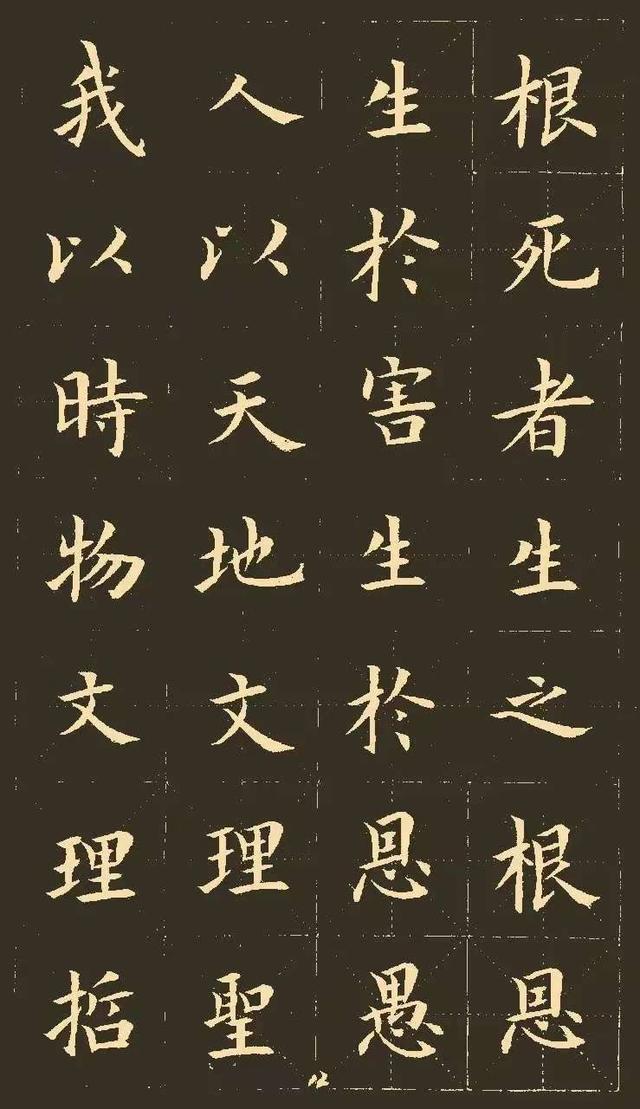 根死者生之根恩
生於害生於恩愚
人以天地文理聖
我以時物文理哲
12